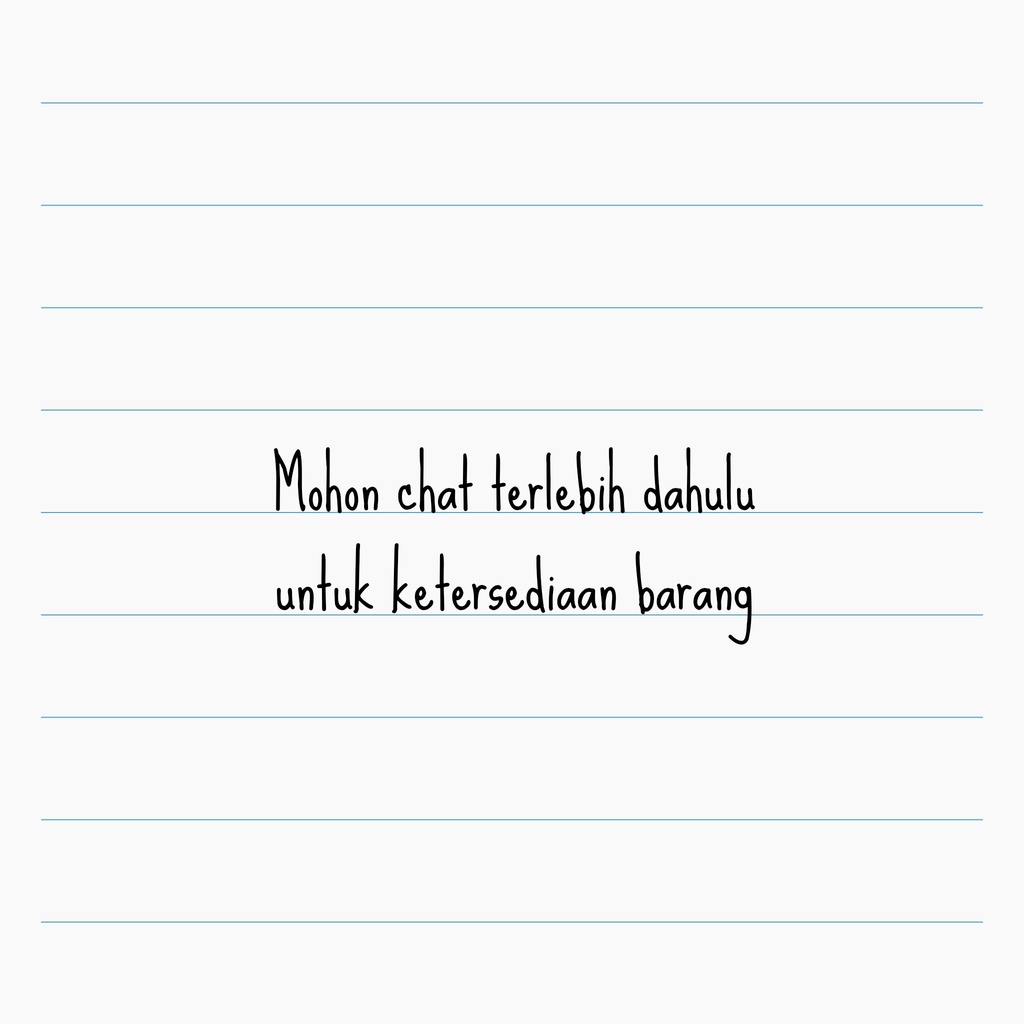 Mohon chat terlebih dahulu
untuk ketersediaan barang